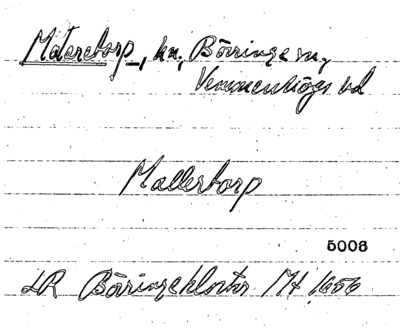 Mölaretorp, hn., Börringe sn,
Vemmenhögs hd
Mallertorp
5006
LR Börringekloster Mt 1656